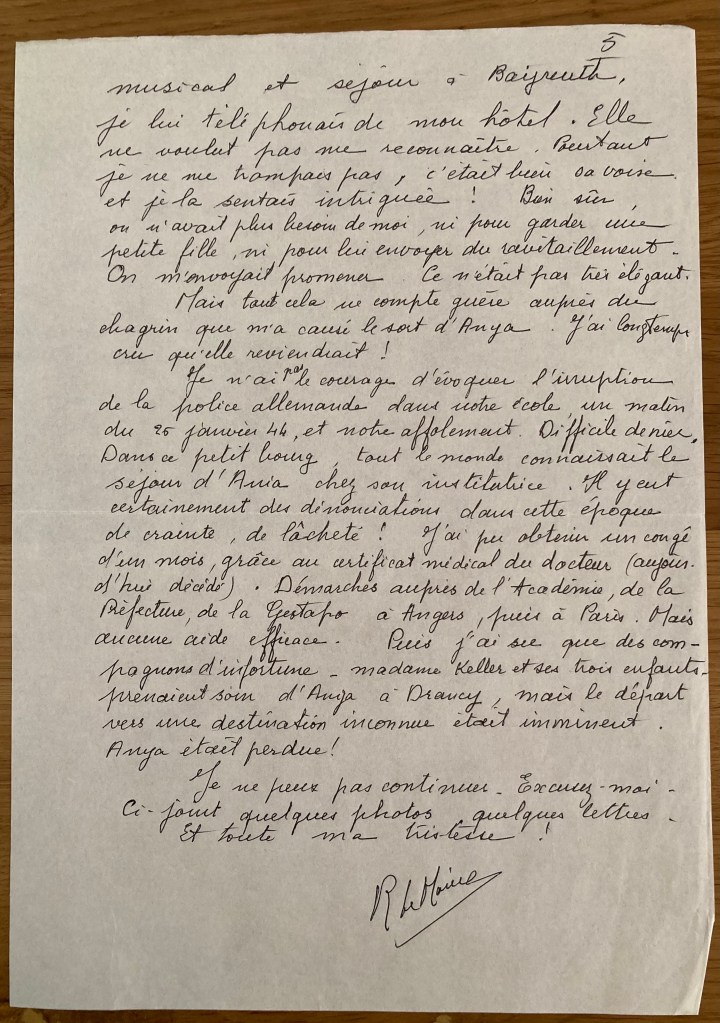 5
musical et séjour à Bayreuth,
je lui téléphonais de mon hôtel. Elle
ne voulut pas me reconnaître. Pourtant
je ne me trompais pas, c'était bien sa voix
et je la sentais intriguée ! Bien sûr,
on n'avait plus besoin de moi, ni pour garder une
petite fille, ni pour lui envoyer du ravitaillement.
On m'envoyait promener Ce n'était pas très élégant.
Mais tout cela ne compte guère auprès du
chagrin que m'a causé le sort d'Anya. J'ai longtemps
cru qu'elle reviendrait !
Je n'ai pas le courage d'évoquer l'irruption
de la police allemande dans notre école, un matin
du 25 janvier 44, et notre affolement. Difficile de nier.
Dans ce petit bourg, tout le monde connaissait le
séjour d'Ania chez son institutrice. Il y eut
certainement des dénonciations dans cette époque
de crainte, de lâcheté ! J'ai pu obtenir un congé
d'un mois, grâce au certificat médical du docteur (aujour-
d'hui décédé). Démarches auprès de l'Académie, de la
Préfecture, de la Gestapo à Angers, puis à Paris. Mais
aucune aide efficace. Puis j'ai su que des com-
pagnons d'infortune - madame Keller et ses trois enfants -
prenaient soin d'Anya à Drancy, mais le départ
vers une destination inconnue était imminent.
Anya était perdue !
Je ne peux pas continuer - Excusez-moi -
Ci-joint quelques photos, quelques lettres -
Et toute ma tristesse !